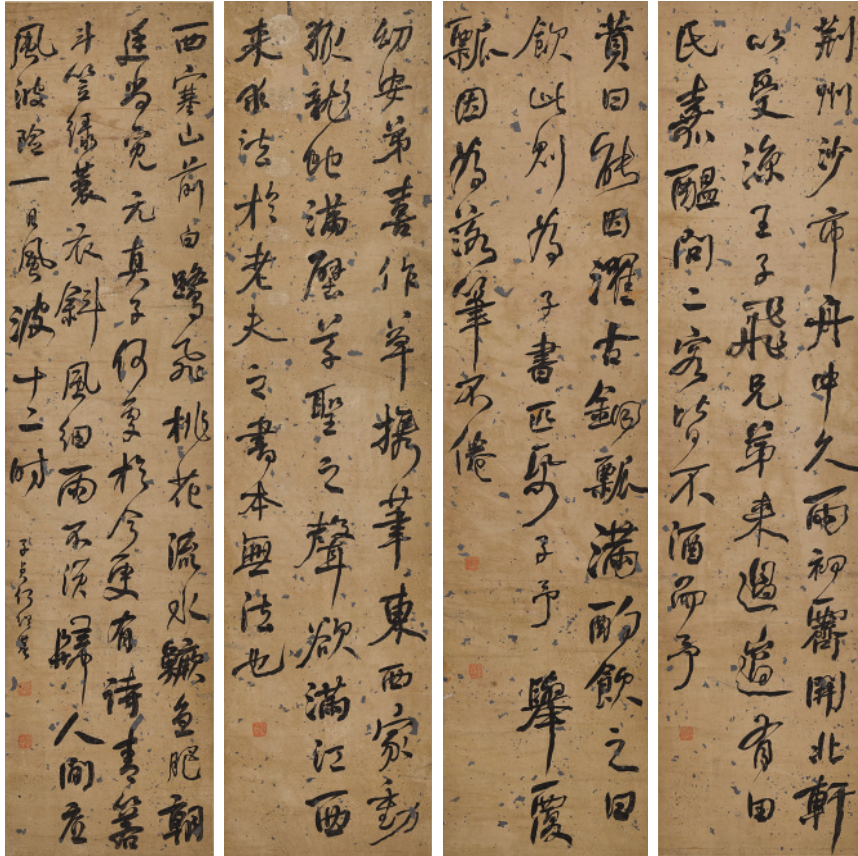 荆州沙市舟中久雨初霽開北軒
以受涼王子飛兄弟来過適有田
氏嘉醞問二客皆不酒而予
蕡曰能因濯古銅瓢滿酌飲之曰
飲此則為子書匹帋子予舉覆
瓢因為落筆不倦
幼安弟喜作草携筆東西家動
輒龍蛇滿壁草聖之聲欲滿江西
来求法於老夫之書本無法也
西塞山前白鷺飛桃花流水鱖魚肥朝
廷尚覓元真子何處於今更有詩青箬
斗笠綠蓑衣斜風細雨不須歸人間
風波險一日風波十二時
子貞何紹基